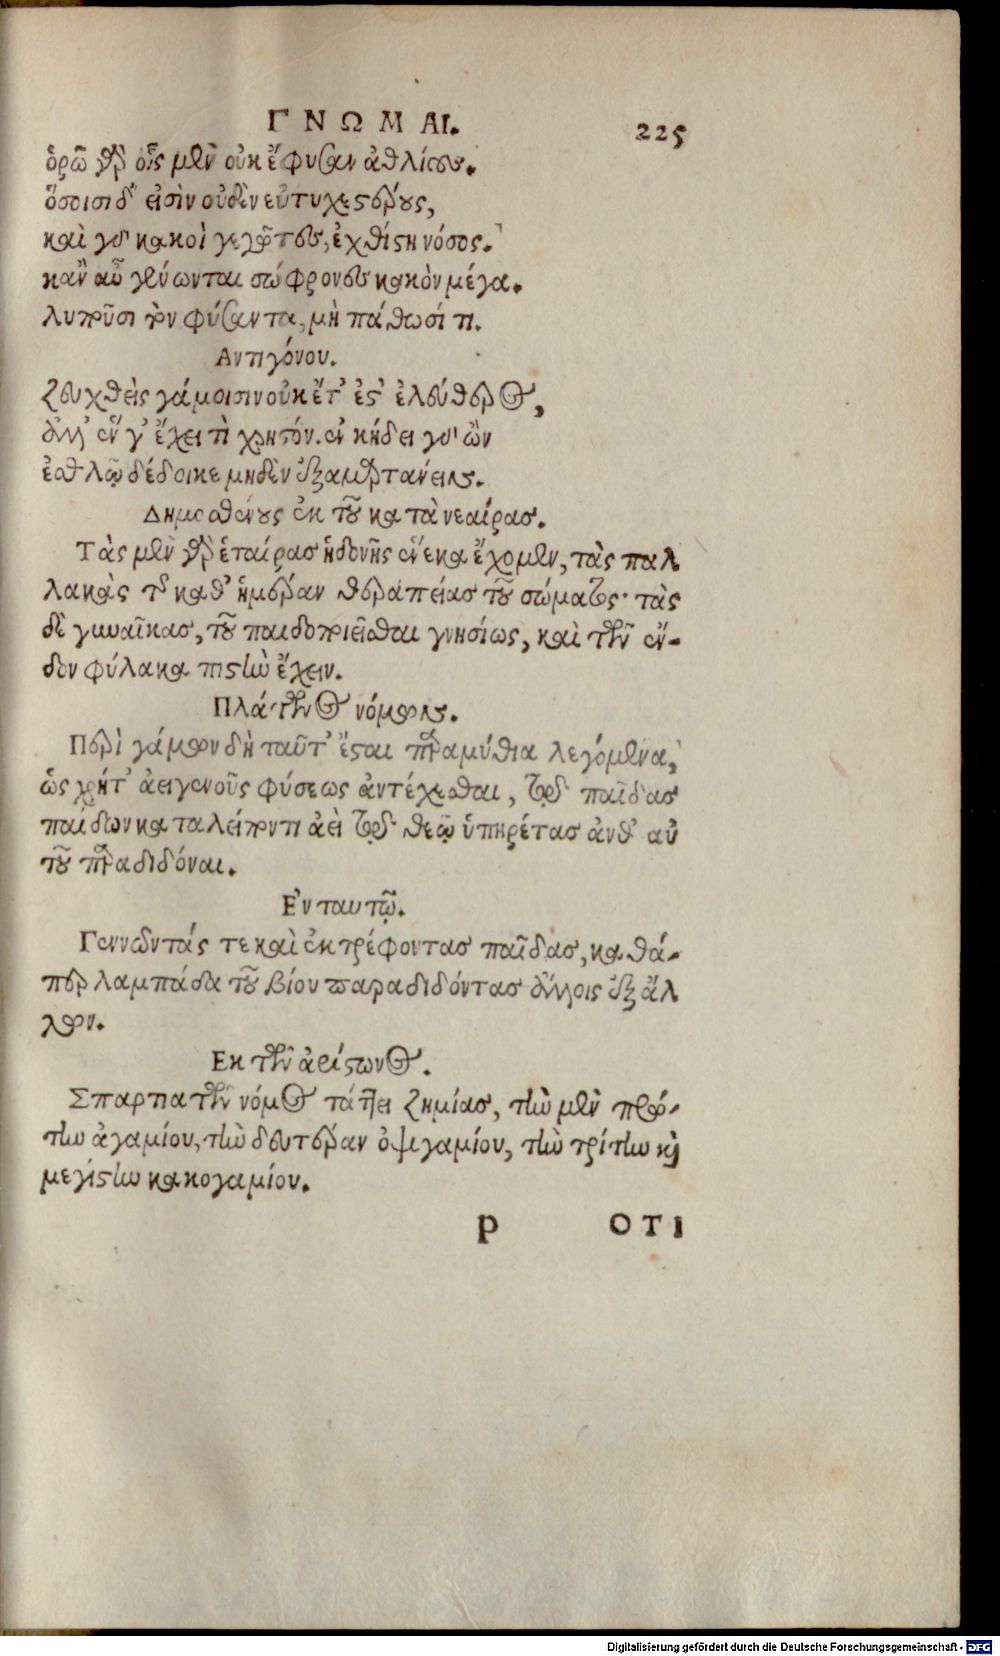 ΓΝΩΜΑΙ. 225
ὁρῶ γὰρ οἷς μὲν οὐκ ἔφυσαν ἀθλίους.
ὅσοισι δ' εἰσὶν οὐδὲν εὐτυχεστέρους,
καὶ γὰρ κακοὶ γεγῶτες, ἐχθίστη νόσος.
κἂν αὖ γένωνται σώφρονες κακὸν μέγα.
λυποῦσι τὸν φύσαντα, μὴ πάθωσί τι.
Αντιγόνου.
Ζευχθεὶς γάμοισιν οὐκ ἔτ' ἔστ' ἐλεύθερος,
ἀλλ' ἕν γ' ἔχει τὶ χρηστόν. ἐν κήδει γὰρ ὢν
ἐσθλῷ δέδοικε μηδὲν ἐξαμαρτάνειν.
Δημοσθένους ἐκ τοῦ κατὰ νεαίρας.
Τὰς μὲν γὰρ ἑταίρας ἡδονῆς ἕνεκα ἔχομεν, τὰς παλ
λακὰς τῆς καθ' ἡμέραν θεραπείας τοῦ σώματος· τὰς
δὲ γυναῖκας, τοῦ παιδοποιεῖσθαι γνησίως, καὶ τῶν ἔν-
δον φύλακα πιστὴν ἔχειν.
Πλάτωνος νόμων.
Περὶ γάμων δὴ ταῦτ' ἔσται παραμύθια λεγόμενα,
ὡς χρήτ' ἀειγενοῦς φύσεως ἀντέχεσθαι, τῷ παῖδας
παίδων καταλείποντι ἀεὶ τῷ θεῷ ὑπηρέτας ἀνθ' αὑ
τοῦ παραδιδόναι.
Εν ταυτῷ.
Γεννῶντάς τε καὶ ἐκτρέφοντας παῖδας, καθά-
περ λαμπάδα τοῦ βίου παραδιδόντας ἄλλοις ἐξ ἄλ
λων.
Εκ τῶν ἀρίστωνος.
Σπαρτιατῶν νόμος τάττει ζημίας, τὴν μὲν πρώ-
την ἀγαμίου, τὴν δευτέραν ὀψιγαμίου, τὴν τρίτην καὶ
μεγίστην κακογαμίου.
P ΟΤΙ
Digitalisierung gefördert durch die Deutsche Forschungsgemeinschaft - DFG